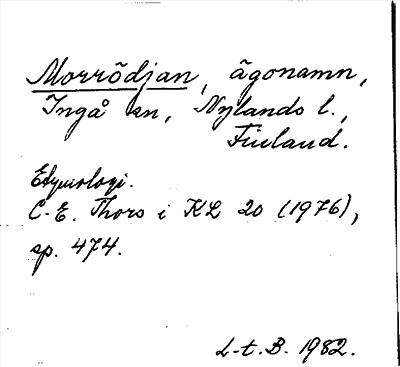 Morrödjan, ägonamn,
Ingå sn, Nylands l.,
Finland.
Etymologi.
C.-E. Thors i KL 20 (1976),
sp. 474.
L-t. B. 1982.